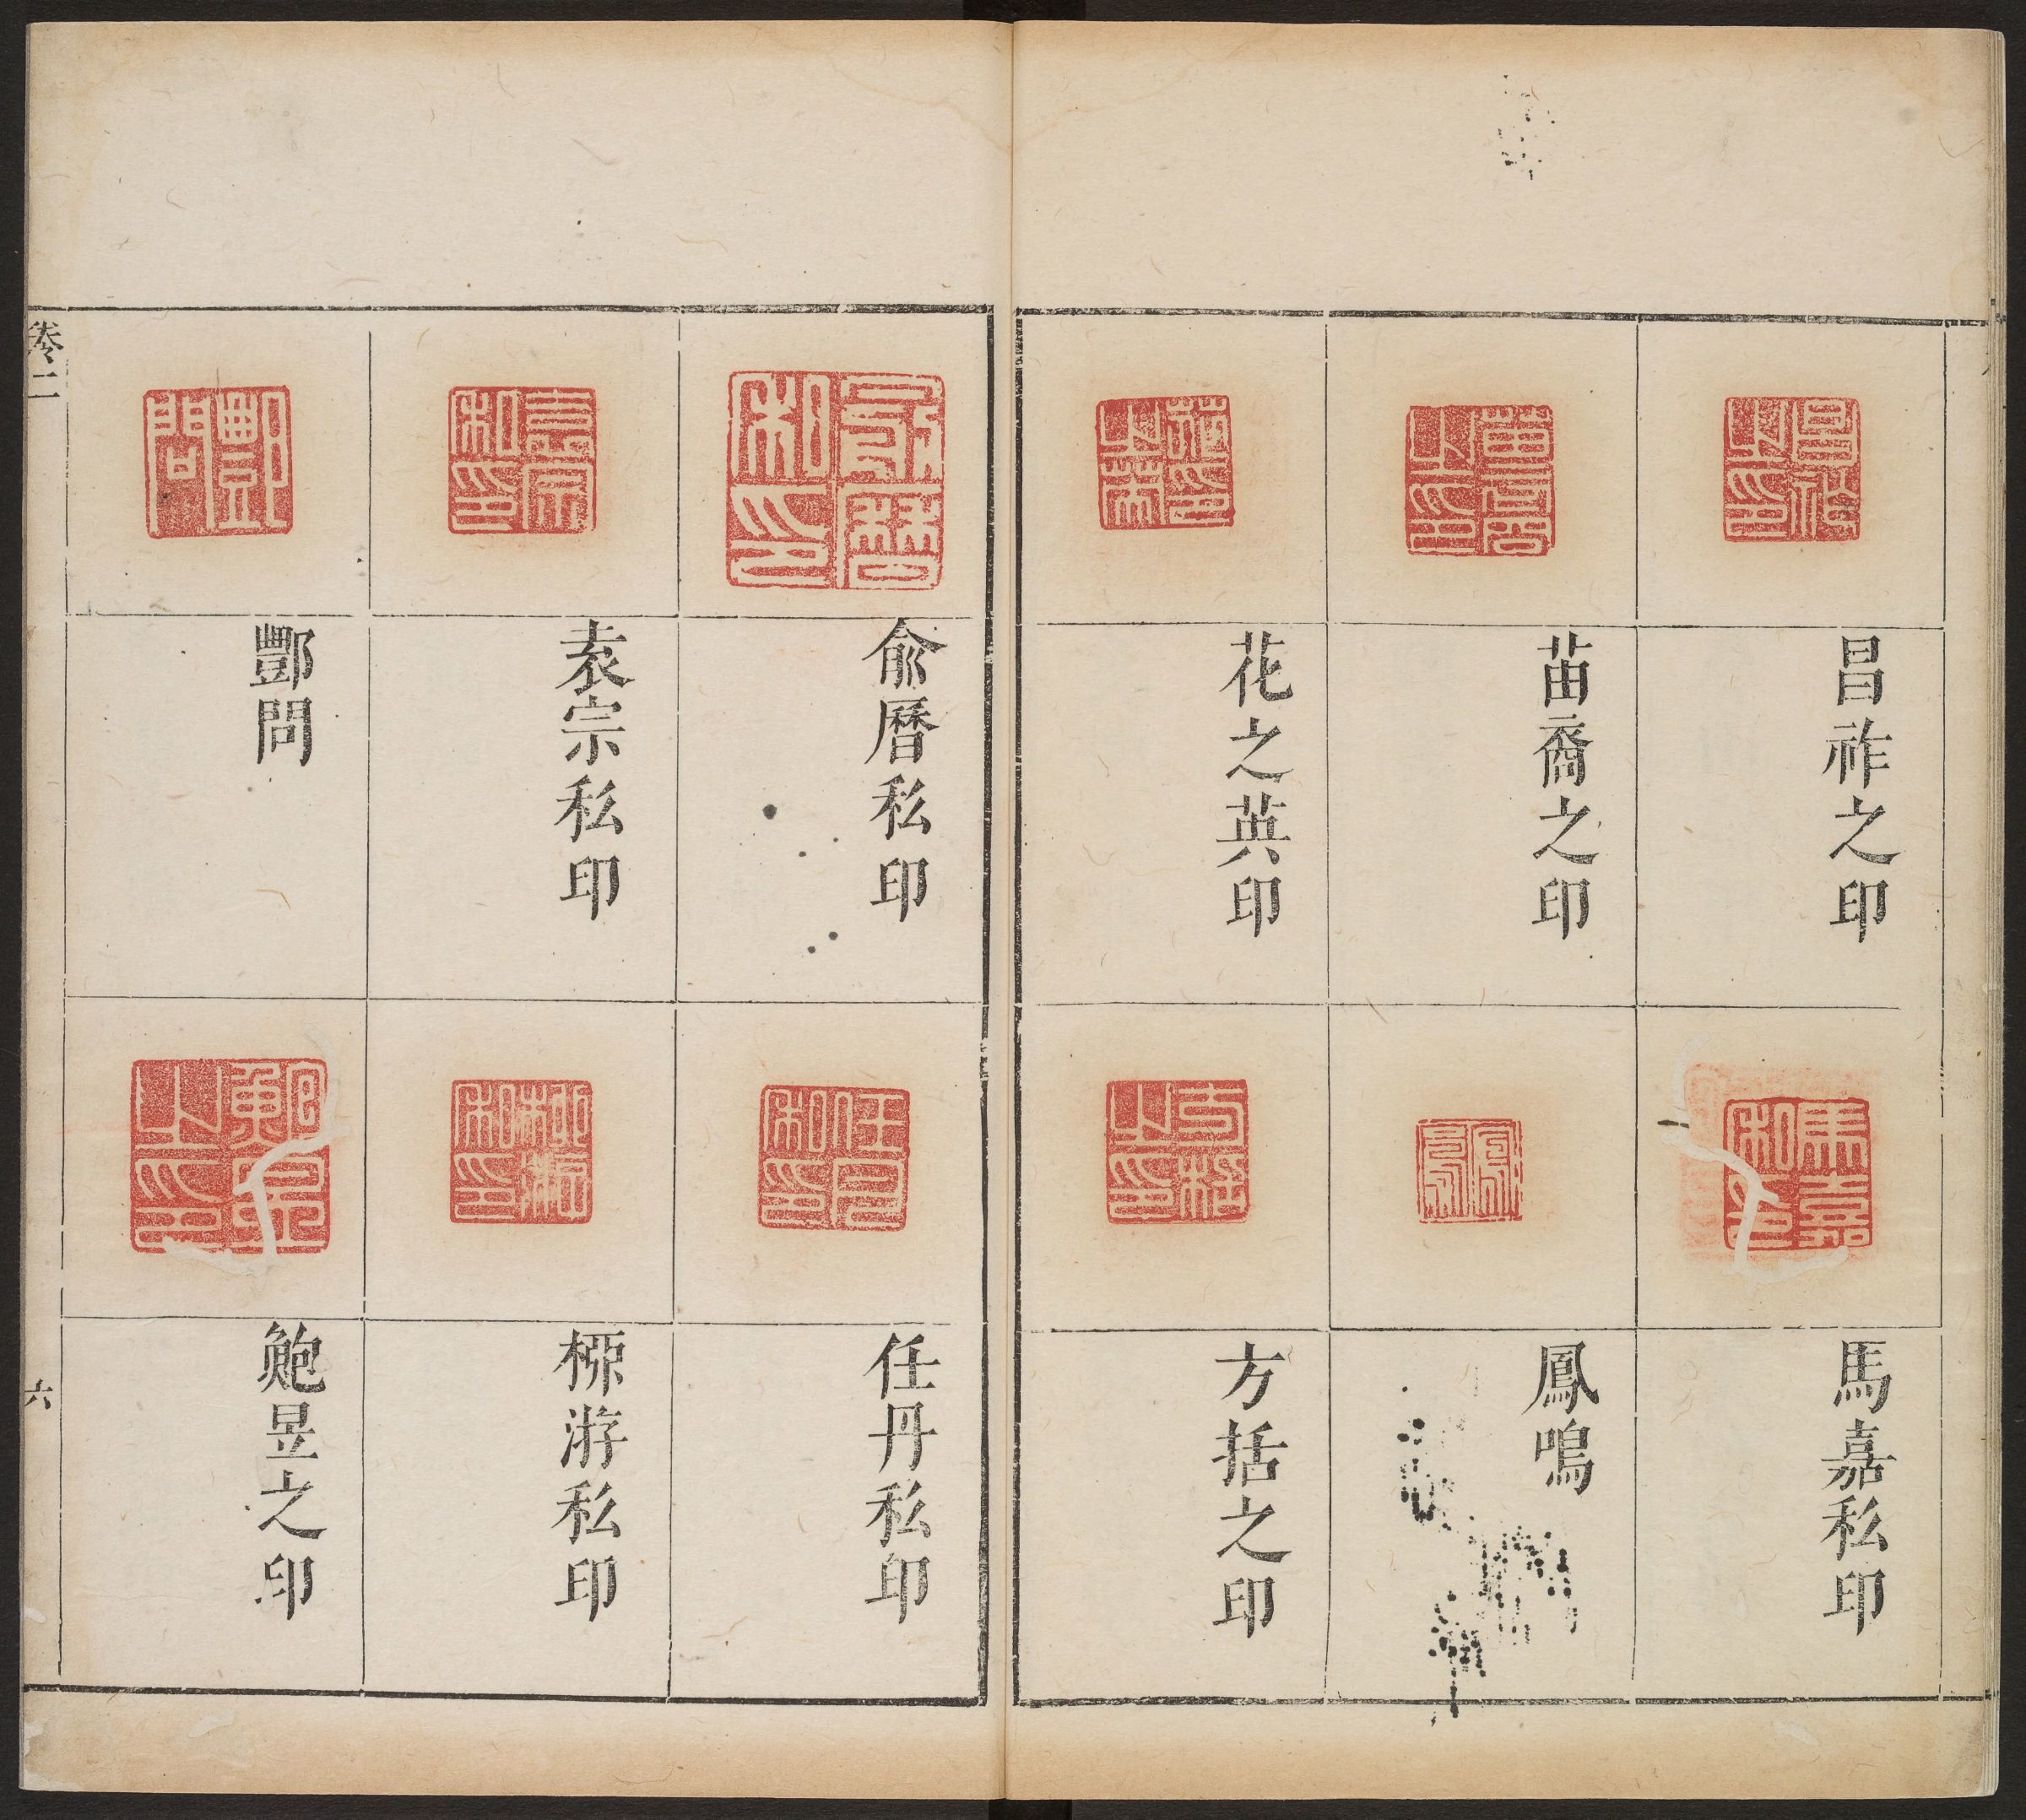 昌祚之印
苗裔之印
花之英印
馬嘉私印
鳳鳴
方括之印
俞曆私印
袁宗私印
酆問
任丹私印
游私印
鮑昱之印
卷二
六